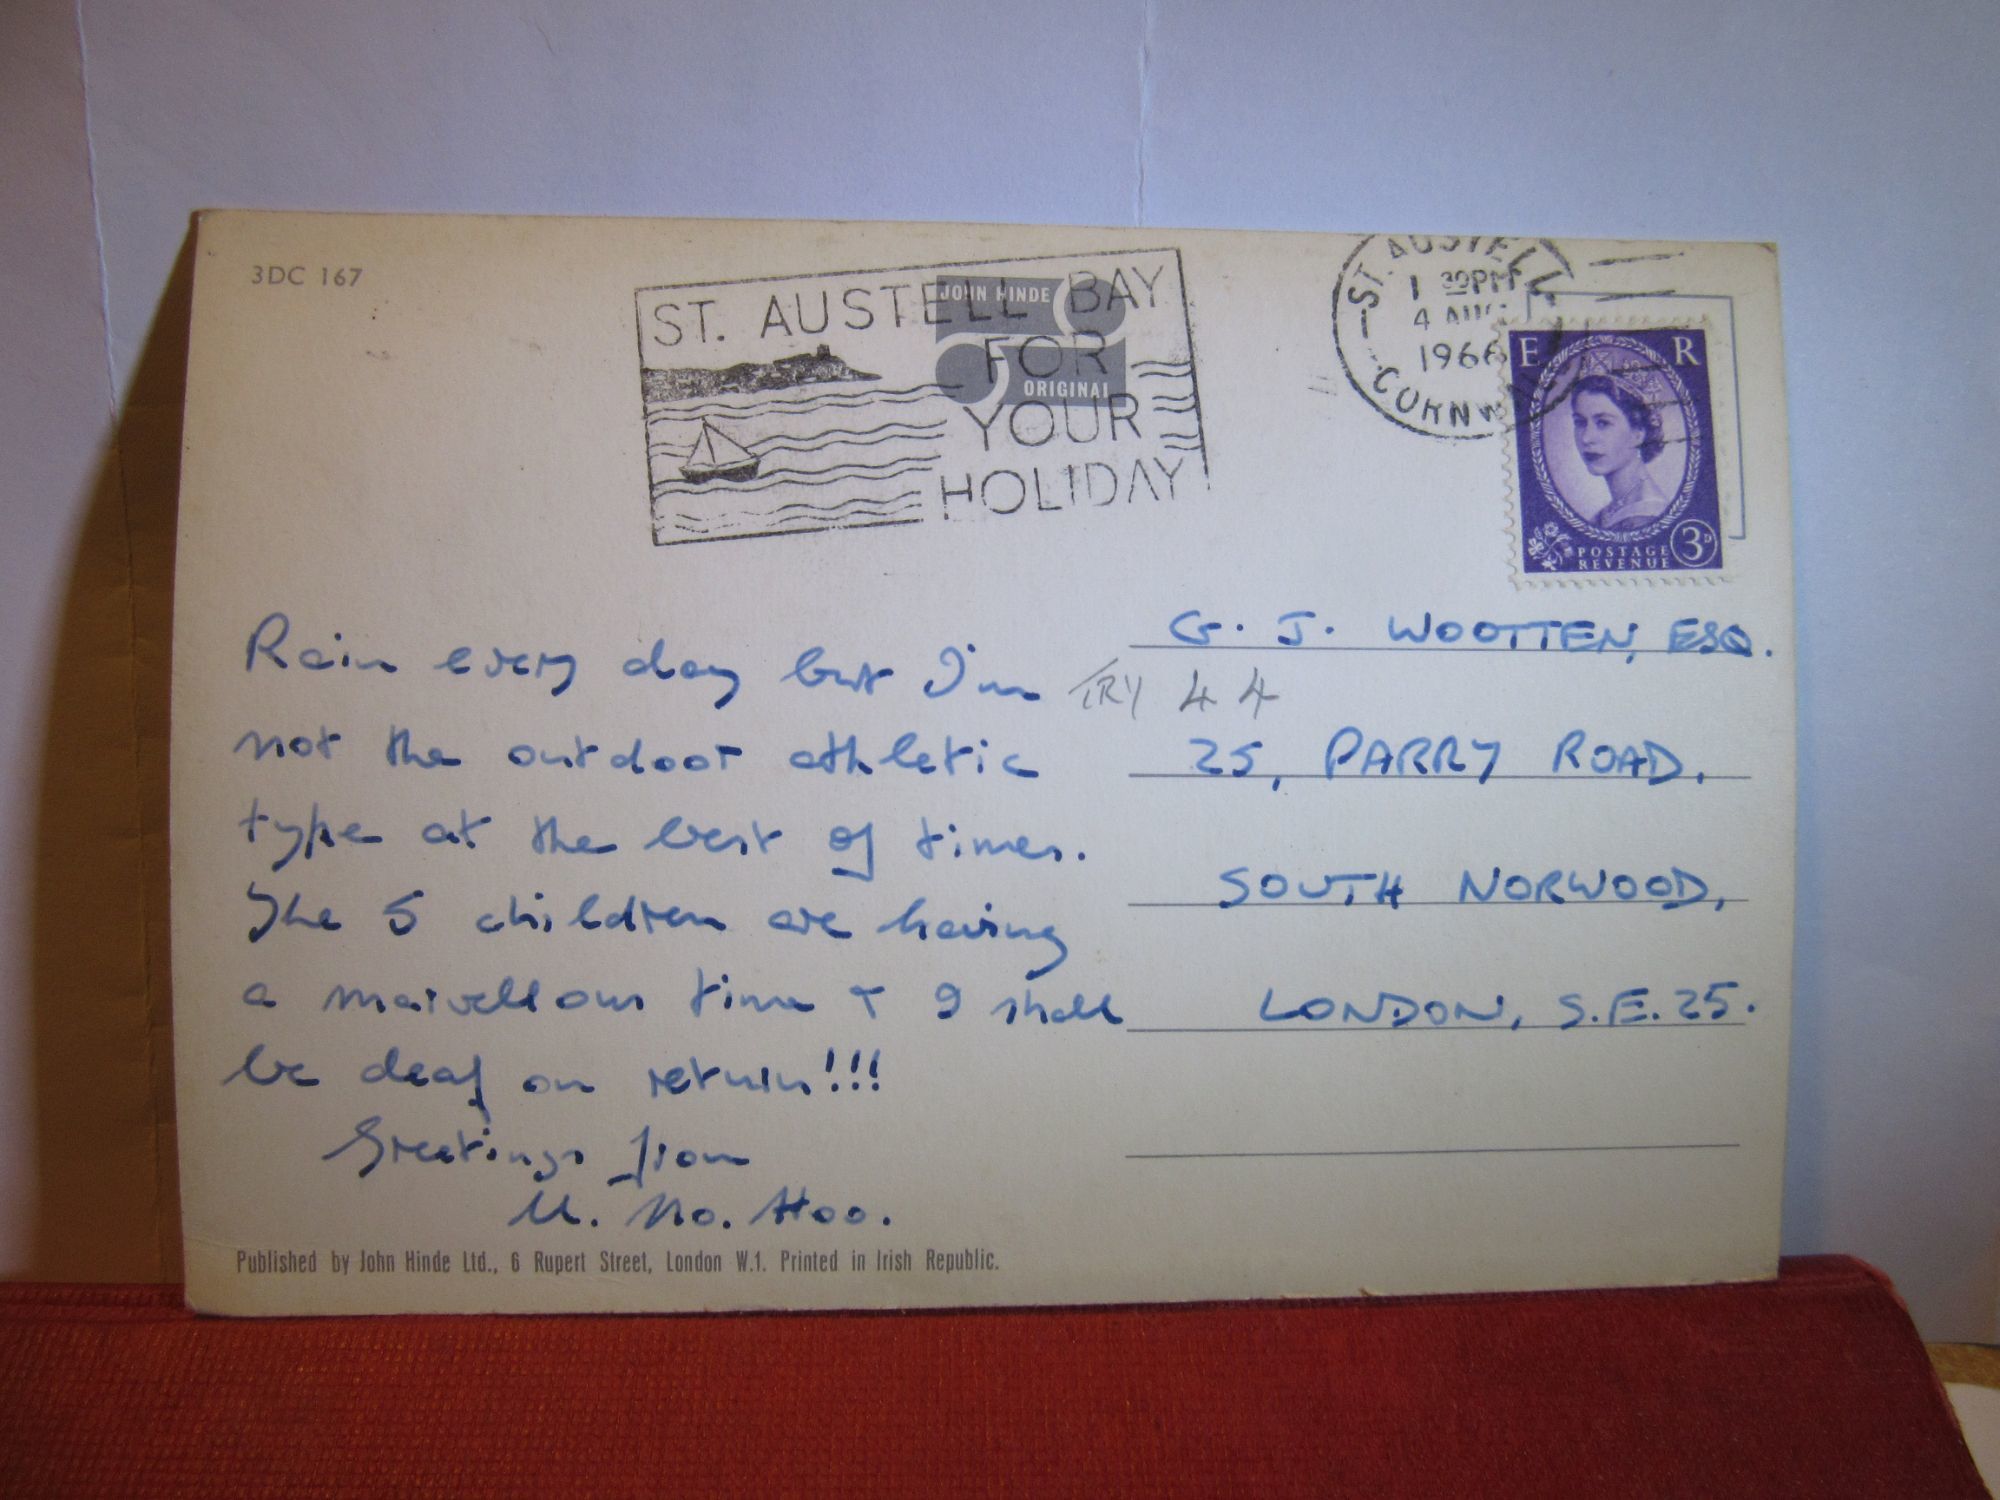 3DC 167
ST. AUSTELL BAY
FOR
YOUR
HOLIDAY
JOHN HINDE
ORIGINAL
ST. AUSTELL
1 30PM
4 AUG
1966
CORNWALL
E R
POSTAGE
REVENUE
3D
Rain every day but I'm
not the outdoor athletic
type at the best of times.
The 5 children are having
a marvellous time + I shall
be deaf on return!!!
Greetings from
U. No. Hoo.
G. J. WOOTTEN, ESQ.
TRY 44
25, PARRY ROAD,
SOUTH NORWOOD,
LONDON, S.E.25.
Published by John Hinde Ltd., 6 Rupert Street, London W.1. Printed in Irish Republic.